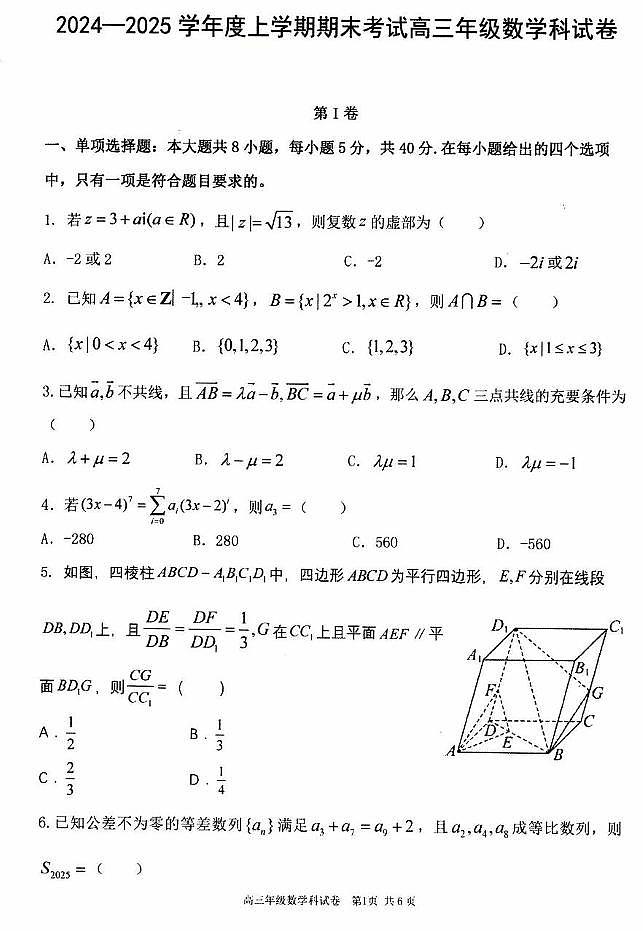 2024—2025 学年度上学期期末考试高三年级数学科试卷
第 I 卷
一、单项选择题：本大题共 8 小题，每小题 5 分，共 40 分. 在每小题给出的四个选项
中，只有一项是符合题目要求的。
1. 若 z = 3 + ai(a ∈ R)，且| z |= √13，则复数 z 的虚部为（ ）
A. -2 或 2 B. 2 C. -2 D. -2i 或 2i
2. 已知 A = {x ∈ Z| -1,, x < 4}，B = {x | 2ˣ > 1, x ∈ R}，则 A⋂B = （ ）
A. {x | 0 < x < 4} B. {0,1,2,3} C. {1,2,3} D. {x | 1 ≤ x ≤ 3}
3. 已知 a⃗, b⃗ 不共线，且 AB = λa⃗ - b⃗, BC = a⃗ + μb⃗，那么 A, B, C 三点共线的充要条件为
（ ）
A. λ + μ = 2 B. λ - μ = 2 C. λμ = 1 D. λμ = -1
4. 若 (3x - 4)⁷ = ∑_{i=0}^{7} aᵢ(3x - 2)ⁱ，则 a₃ = （ ）
A. -280 B. 280 C. 560 D. -560
5. 如图，四棱柱 ABCD - A₁B₁C₁D₁ 中，四边形 ABCD 为平行四边形，E, F 分别在线段
DB, DD₁ 上，且 DE/DB = DF/DD₁ = 1/3, G 在 CC₁ 上且平面 AEF // 平
面 BD₁G，则 CG/CC₁ = （ ）
A. 1/2 B. 1/3
C. 2/3 D. 1/4
D₁ C₁
A₁ B₁
F G
D C
E
A B
6. 已知公差不为零的等差数列 {aₙ} 满足 a₃ + a₇ = a₉ + 2，且 a₂, a₄, a₈ 成等比数列，则
S₂₀₂₅ = （ ）
高三年级数学科试卷 第1页 共 6 页